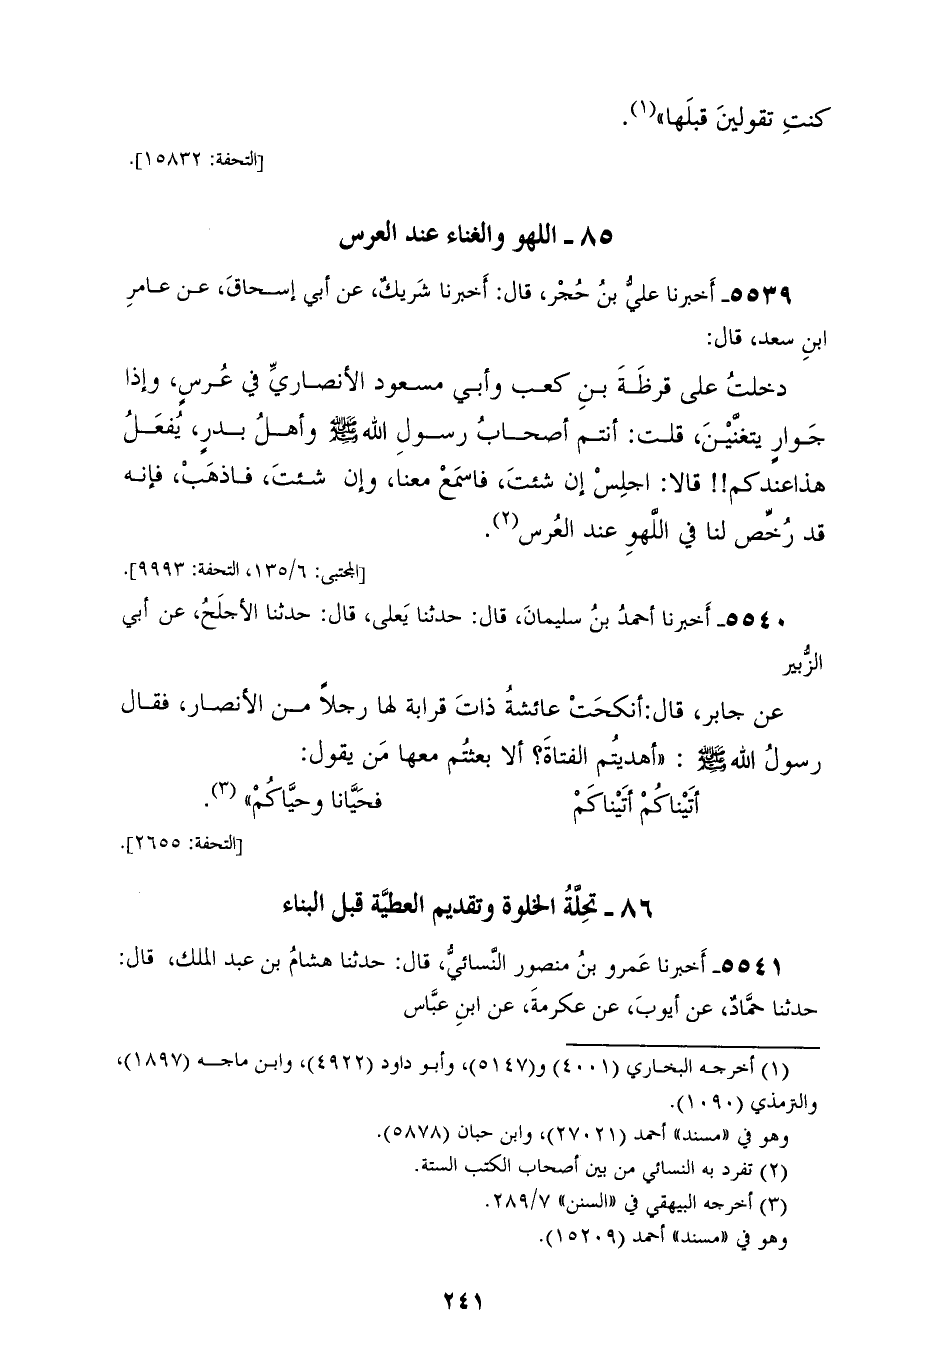 كنتِ تقولينَ قبلَها»(١).
[التحفة: ١٥٨٣٢].
٨٥ ـ اللهو والغناء عند العرس
٥٥٣٩ـ أَخبرنا عليُّ بنُ حُجْر، قال: أَخبرنا شَريكٌ، عن أبي إسحاقَ، عن عامرِ
ابنِ سعد، قال:
دخلتُ على قرظَةَ بنِ كعب وأبي مسعود الأنصاريِّ في عُرسٍ، وإذا
جَوارٍ يتغنَّيْنَ، قلت: أنتم أصحابُ رسولِ اللهﷺ وأهلُ بدرٍ، يُفعَلُ
هذاعندكم!! قالا: اجلِسْ إن شئتَ، فاسمَعْ معنا، وإن شئتَ، فاذهَبْ، فإنه
قد رُخِّص لنا في اللَّهوِ عند العُرس(٢).
[المجتبى: ١٣٥/٦، التحفة: ٩٩٩٣].
٥٥٤٠ـ أَخبرنا أحمدُ بنُ سليمانَ، قال: حدثنا يَعلى، قال: حدثنا الأجلَحُ، عن أبي
الزُّبير
عن جابر، قال:أنكحَتْ عائشةُ ذاتَ قرابة لها رجلاً من الأنصار، فقال
رسولُ اللهﷺ : «أهديتُم الفتاةَ؟ ألا بعثتُم معها مَن يقول:
أتَيْناكُمْ أتَيْناكَمْ فحَيَّانا وحيَّاكُمْ» (٣).
[التحفة: ٢٦٥٥].
٨٦ ـ تحِلَّةُ الخلوة وتقديم العطيَّة قبل البناء
٥٥٤١ـ أَخبرنا عَمرو بنُ منصور النَّسائيُّ، قال: حدثنا هشامُ بن عبد الملك، قال:
حدثنا حمَّادٌ، عن أيوبَ، عن عكرمةَ، عن ابنِ عبَّاس
(١) أخرجه البخاري (٤٠٠١) و(٥١٤٧)، وأبو داود (٤٩٢٢)، وابن ماجه (١٨٩٧)،
والترمذي (١٠٩٠).
وهو في «مسند» أحمد (٢٧٠٢١)، وابن حبان (٥٨٧٨).
(٢) تفرد به النسائي من بين أصحاب الكتب الستة.
(٣) أخرجه البيهقي في «السنن» ٢٨٩/٧.
وهو في «مسند» أحمد (١٥٢٠٩).
٢٤١